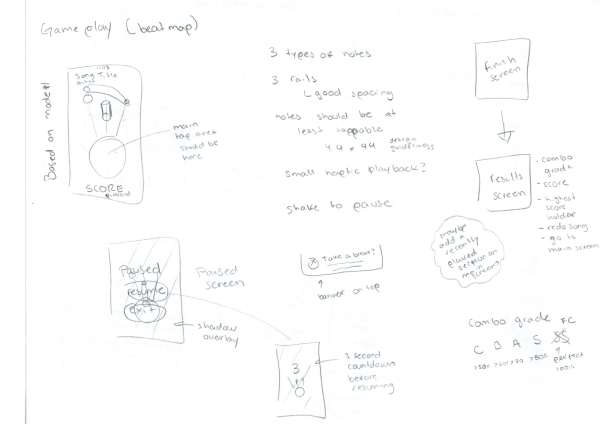 Game play (beat map)
Based on model 1
Song Title
artist
main
tap area
should be
here
SCORE
3 types of notes
3 rails
good spacing
notes should be at
least tappable
44 x 44
design
guidelines
small haptic playback?
shake to pause
finish
screen
results
screen
- combo
grade
- score
- highest
score
holder
- redo song
- go to
main screen
maybe
add a
recently
played
section on
main
screen?
Paused
resume
exit
Paused
screen
shadow
overlay
Take a break?
banner on top
3
3 second
countdown
before
resuming
Combo grade FC
C B A S SS
>80%
perfect
100%